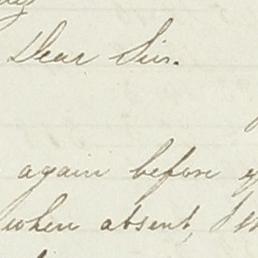 Dear Sir.
again before
when absent, I